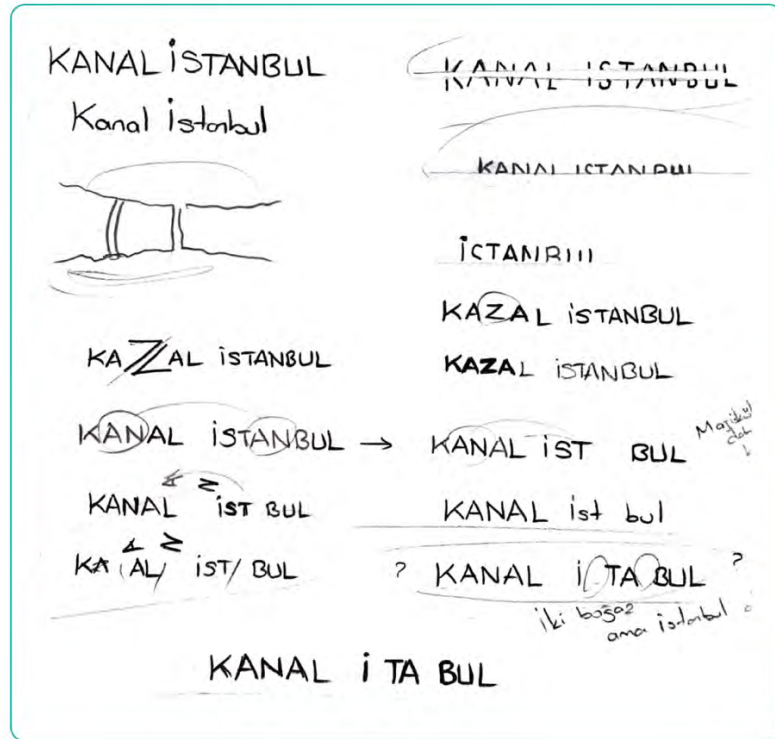 KANAL İSTANBUL
Kanal İstanbul
KANAL ISTANBUL
KANAL ISTANBUL
İSTANBUL
KAZAL iSTANBUL
KAZAL iSTANBUL
KAZAL iSTANBUL
KANAL iSTANBUL →
KANAL iST BUL
KANAL iST BUL
KANAL ist bul
KA AL/ iST/ BUL
? KANAL İ TA BUL ?
iki boğaz
ama istanbul
KANAL İ TA BUL